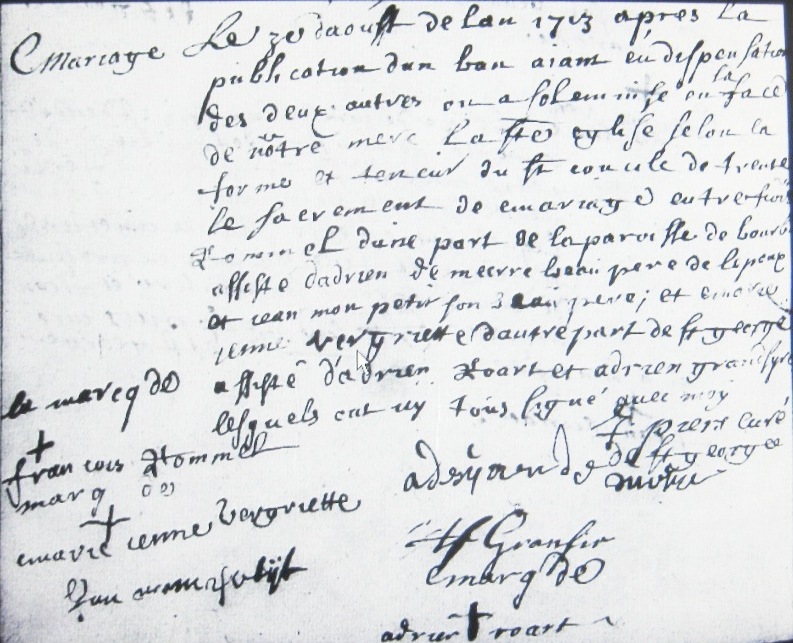 Mariage Le 30 daoust de lan 1713 apres la
publication dun ban aiant eu dispensation
des deux autres on a solemnise en la face
de nôtre mere La ste eglise selon la
forme et teneur du st concile de trente
le sacrement de mariage entre francois
Rommel dune part de la paroisse de bourb
assisté dadrien de meerre beau pere de lepoux
et jean mon petit son beau frere; et marie
jenne vergriette dautre part de st george
assisté d'adrien Roart et adrien gransyre
lesquels ont icy tous signé avec moy
piers curé
de st george
la marcq de
francois Rommel
marq
marie jenne vergriette
adrijaen de
Gransir
marq de
adrien roart